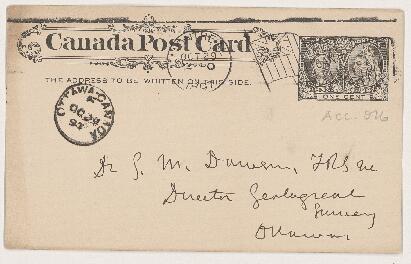 Canada Post Card
THE ADDRESS TO BE WRITTEN ON THIS SIDE.
OCT 29
ONE CENT
OTTAWA·CANADA
OC 29
97
Acc. 026
Dr G. M. Dawson, FRS &c
Director Geological
Survey
Ottawa